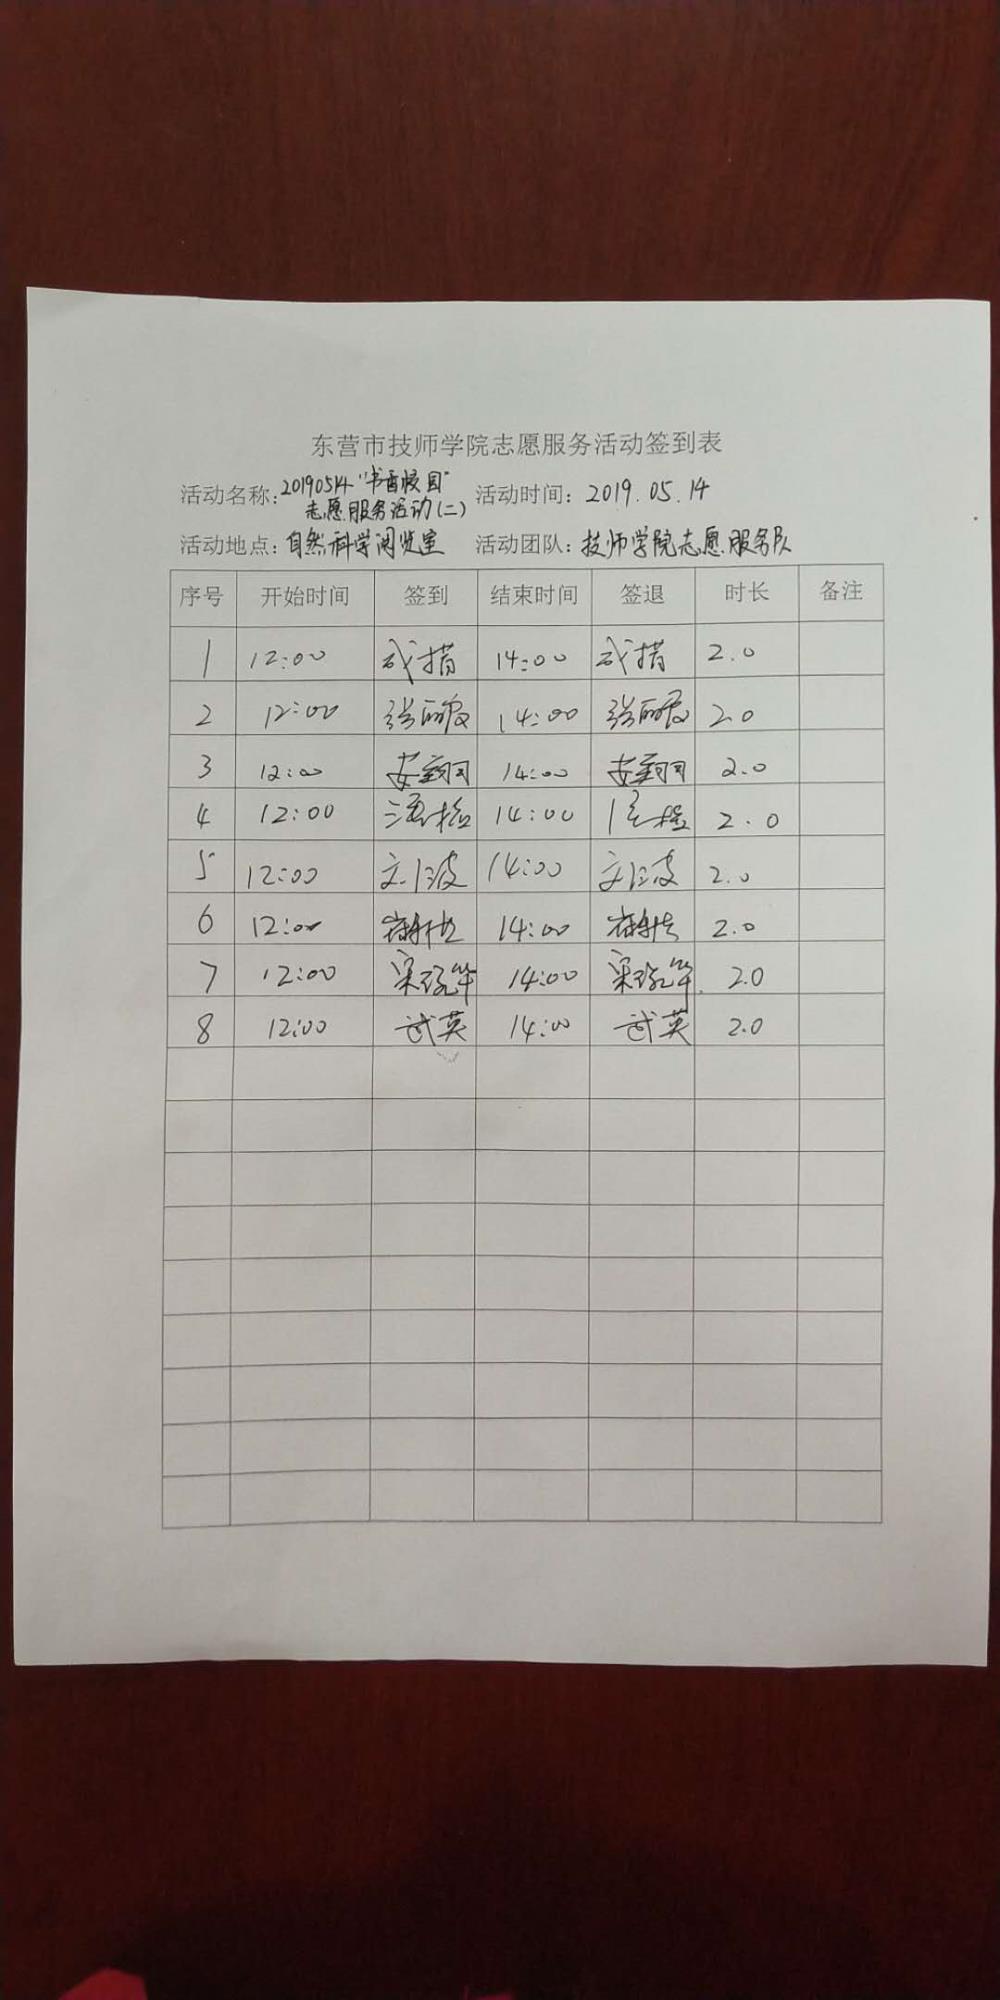 东营市技师学院志愿服务活动签到表
活动名称：20190514“书香校园” 志愿服务活动(二) 活动时间：2019.05.14
活动地点：自然科学阅览室 活动团队：技师学院志愿服务队
序号 开始时间 签到 结束时间 签退 时长 备注
1 12:00 14:00 2.0
2 12:00 张丽霞 14:00 张丽霞 2.0
3 12:00 14:00 2.0
4 12:00 14:00 2.0
5 12:00 14:00 2.0
6 12:00 14:00 2.0
7 12:00 14:00 2.0
8 12:00 武英 14:00 武英 2.0